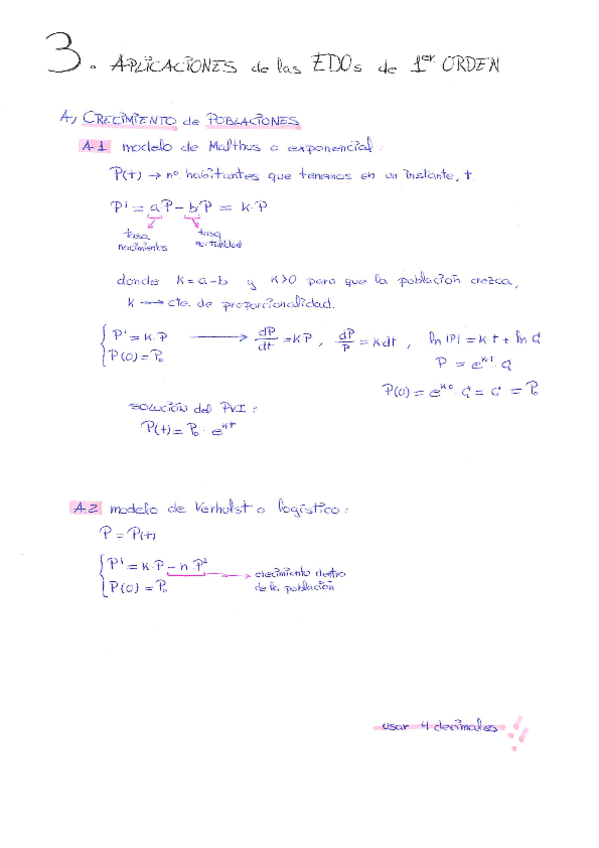 3. APLICACIONES de las EDOs de 1er ORDEN
A) CRECIMIENTO de POBLACIONES
A.1 modelo de Malthus o exponencial:
P(t) → nº habitantes que tenemos en un instante, t.
P' = aP - bP = K·P
tasa nacimientos
tasa mortalidad
donde K = a-b y K>0 para que la población crezca,
K → cte. de proporcionalidad.
P' = K·P → dP/dt = KP, dP/P = Kdt, ln|P| = Kt + ln C
P(0) = P₀
P = e^(Kt)·C
P(0) = e^(K0)·C = C = P₀
solución del PVI:
P(t) = P₀·e^(Kt)
A.2 modelo de Verhulst o logístico:
P = P(t)
P' = K·P - n·P² → crecimiento dentro de la población
P(0) = P₀
usar 4 decimales !!